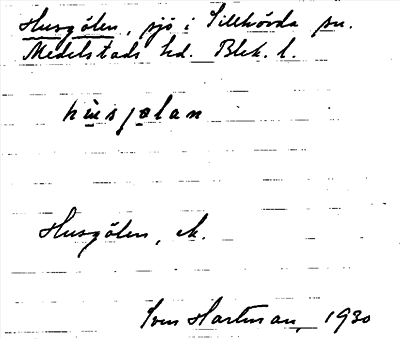 Husgölen, sjö i Sillhövda sn.
Medelstads hd. Blek. l.
hùsjølan
Husgölen, ek.
Sven Hartman, 1930